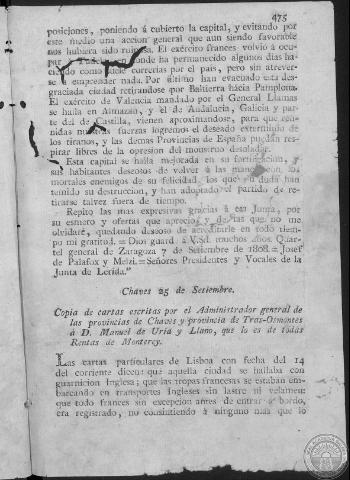 475
posiciones, poniendo á cubierto la capital, y evitando por
este medio una accion general que aun siendo favorable
nos hubiera sido ruinosa. El exército frances volvió á ocu-
par Tudela en donde ha permanecido algunos dias ha-
ciendo como suele correrías por el pais, pero sin atrever-
se á emprender nada. Por último han evacuado esta des-
graciada ciudad retirandose por Baltierra hácia Pamplona.
El exército de Valencia mandado por el General Llamas
se halla en Almazan, y el de Andalucía, Galicia y par-
te del de Castilla, vienen aproximandose, para que reu-
nidas nuestras fuerzas logremos el deseado exterminio de
los tiranos, y las demas Provincias de España puedan res-
pirar libres de la opresion del monstruo desolador.
Esta capital se halla mejorada en su fortificacion, y
sus habitantes deseosos de volver á las manos con los
mortales enemigos de su felicidad, los que sin duda han
temido su destruccion, y han adoptado el partido de re-
tirarse talvez fuera de tiempo.
Repito las mas expresivas gracias á esa Junta, por
su esmero y ofertas que aprecio y de las que no me
olvidaré, quedando deseoso de acreditarle en todo tiem-
po mi gratitud. = Dios guarde á V.SS. muchos años. Quar-
tel general de Zaragoza 7 de Setiembre de 1808. = Josef
de Palafox y Melzi. = Señores Presidentes y Vocales de la
Junta de Lerida."
Chaves 25 de Setiembre.
Copia de cartas escritas por el Administrador general de
las provincias de Chaves y provincia de Tras-Osmontes
á D. Manuel de Uria y Llano, que lo es de todas
Rentas de Monterey.
Las cartas particulares de Lisboa con fecha del 14
del corriente dicen: que aquella ciudad se hallaba con
guarnicion Inglesa; que las tropas francesas se estaban em-
barcando en transportes Ingleses sin lastre ni velamen:
que todo frances sin excepcion antes de entrar á bordo,
era registrado, no consintiendo á ninguno mas que lo